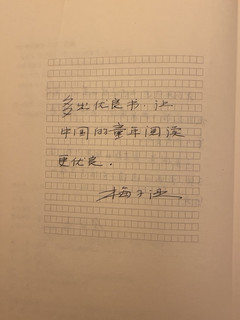 多出优良书，让
中国的童年阅读
更优良。
梅子涵